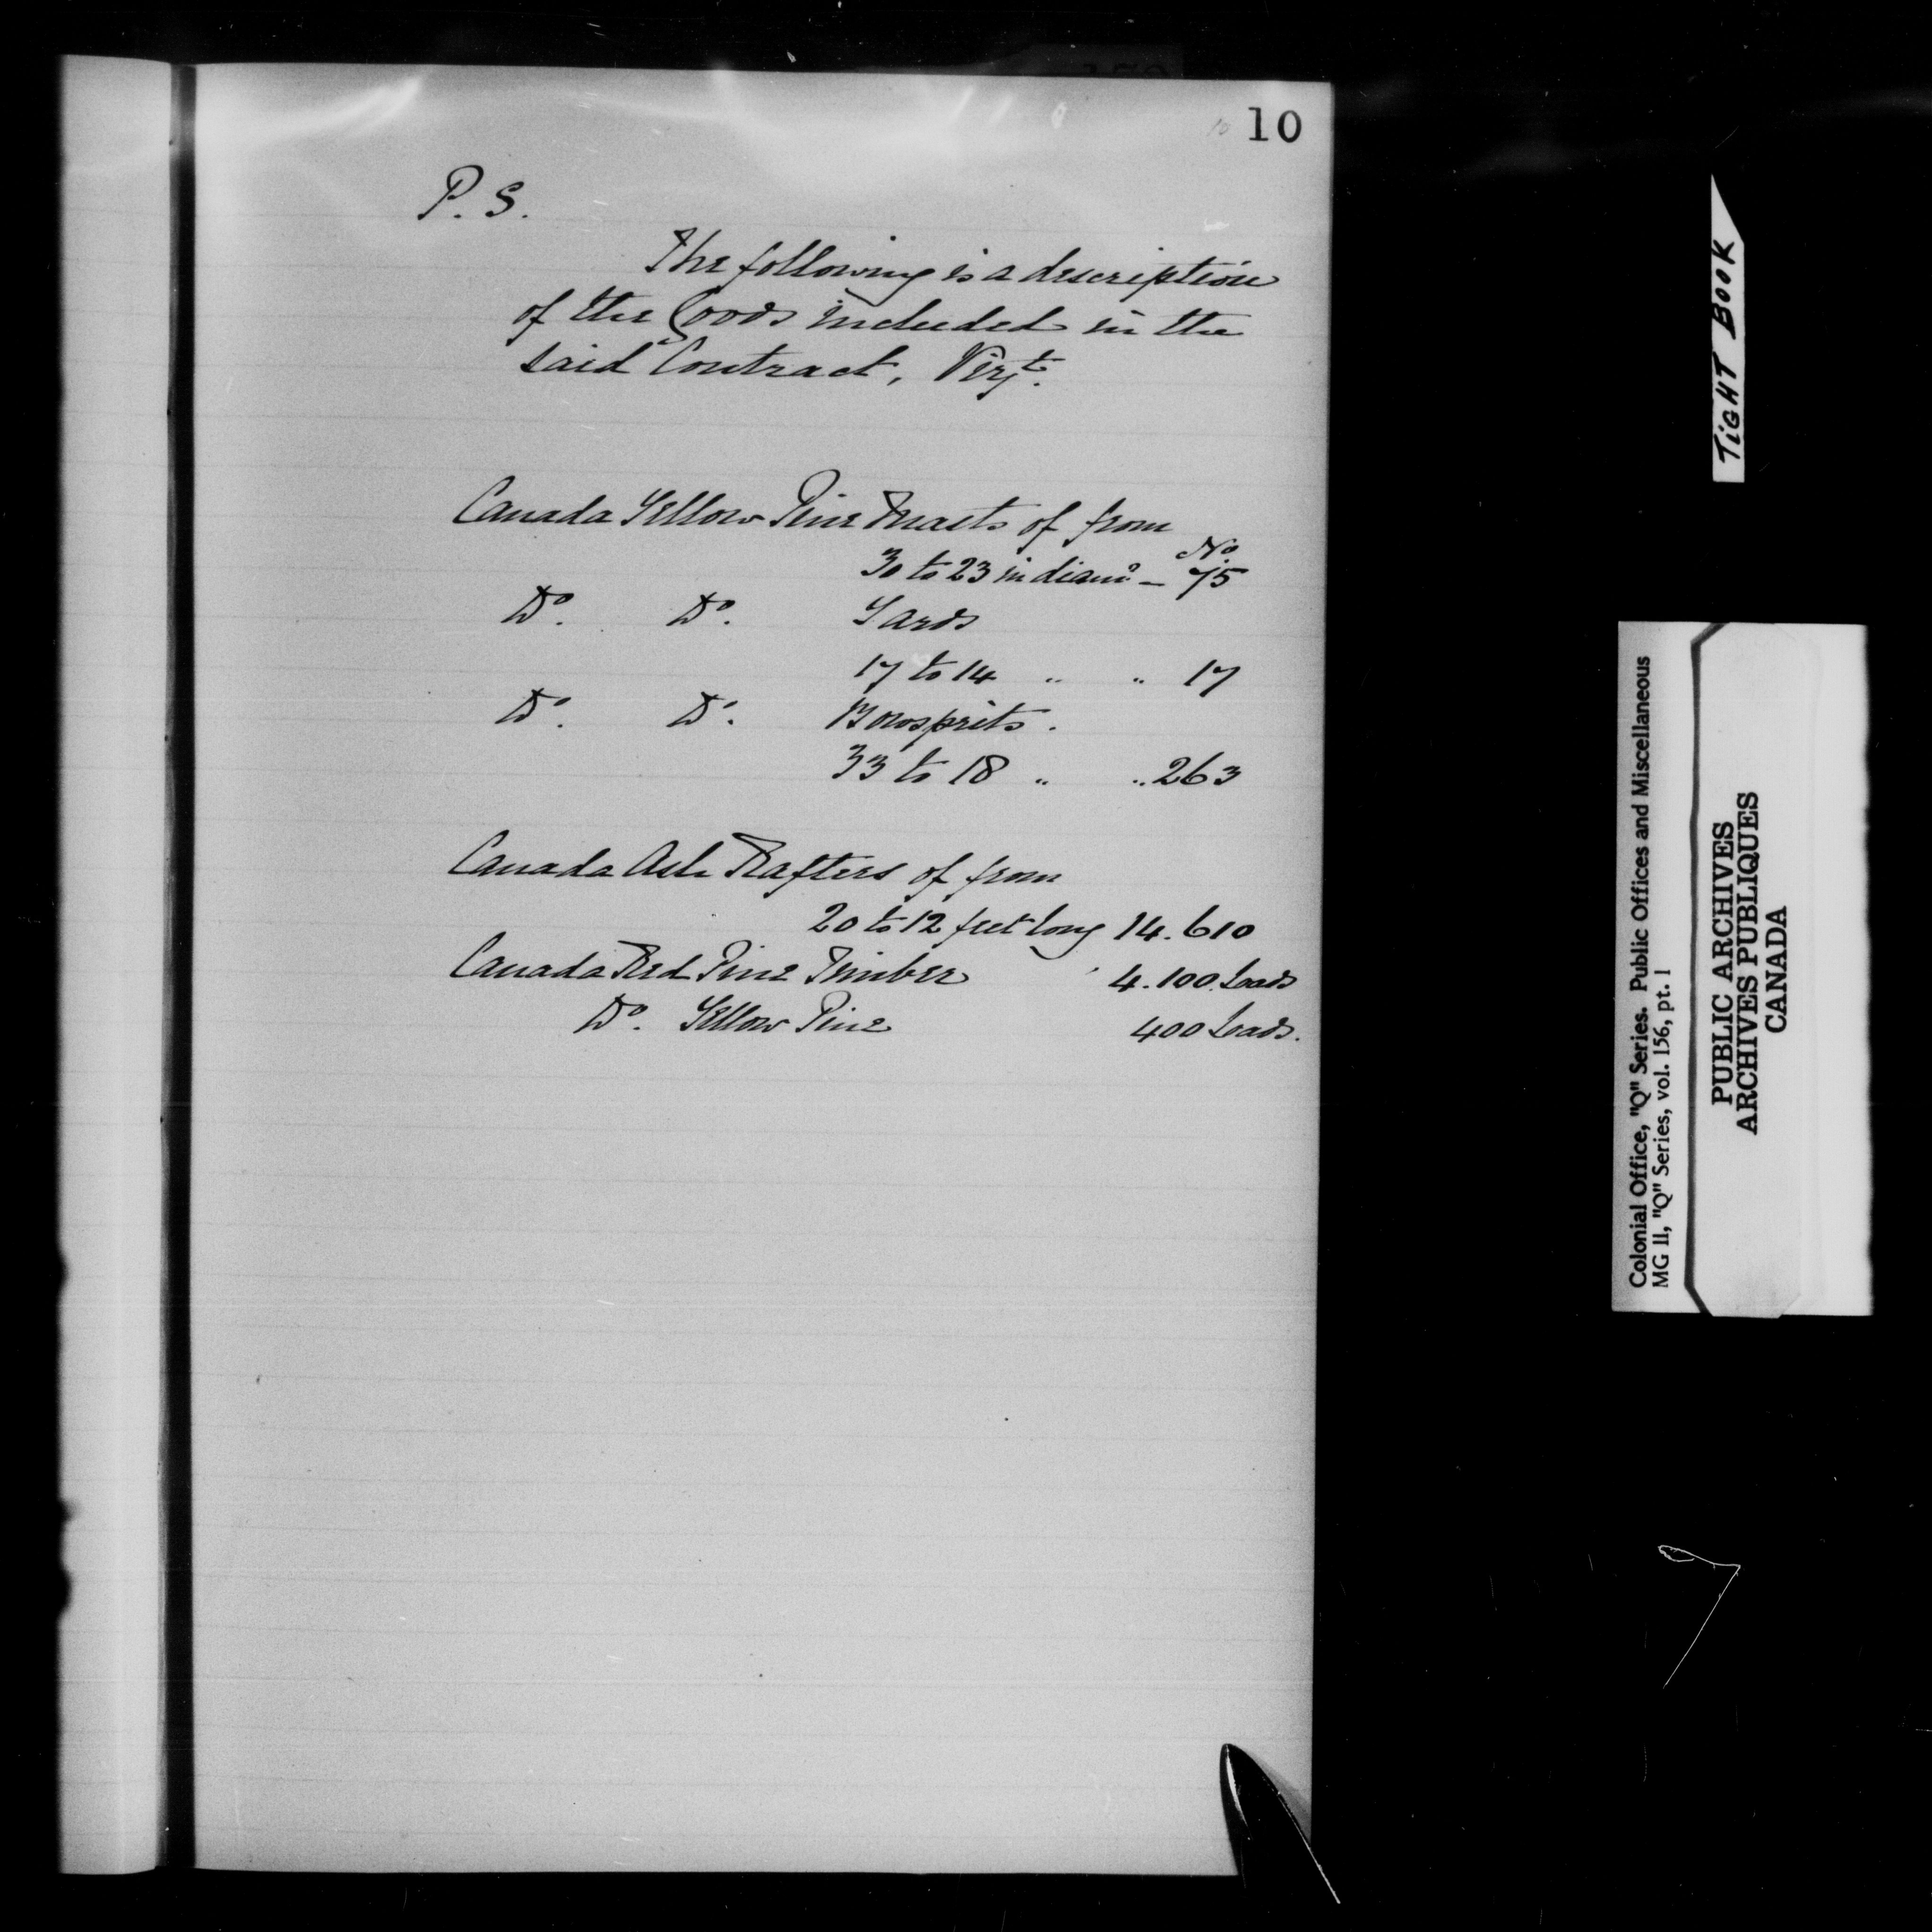 10 10
P. S.
The following is a description
of the Goods included in the
said Contract, Vizt.
Canada Yellow Pine Masts of from
No
30 to 23 in diamr — 75
Do. Do. Yards
17 to 14 " " 17
Do. Do. Bowsprits.
33 to 18 " " 263
Canada Ash Rafters of from
20 to 12 feet long 14.610
Canada Red Pine Timber 4.100 Loads
Do. Yellow Pine 400 Loads.
TIGHT BOOK
Colonial Office, "Q" Series. Public Offices and Miscellaneous
MG 11, "Q" Series, vol. 156, pt. 1
PUBLIC ARCHIVES
ARCHIVES PUBLIQUES
CANADA